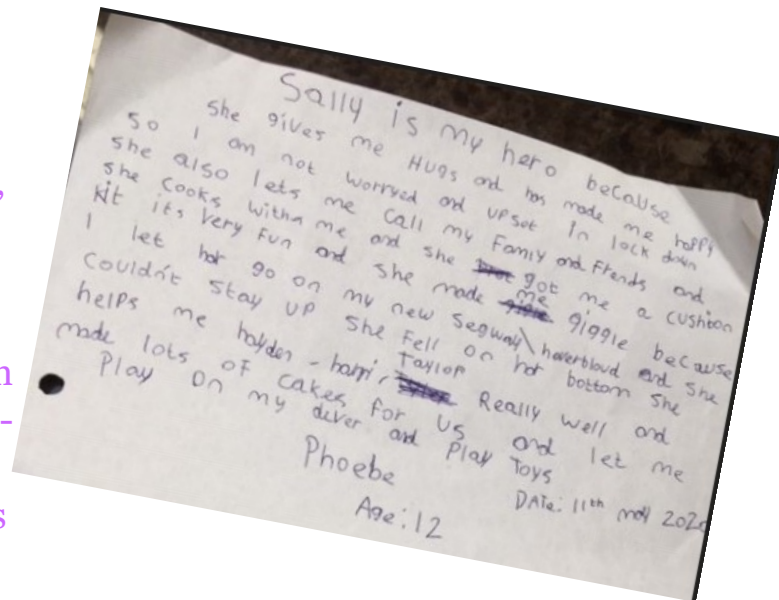 ,
n
-
s
Sally is my hero because
she gives me HUGs and has made me happy
so I am not worryed and upset In lock down
she also lets me call my Famiy and Frends and
she cooks witha me and she got me a cushion
kit its very fun and she made me giggle because
I let har go on my new Segway\ hoverbloud and she
couldn't stay up she fell on har bottom she
helps me hayden - harri, Taylor Really well and
made lots of cakes for us and let me
Play on my and Play Toys
Phoebe
DATe: 11th may 2020
Age: 12